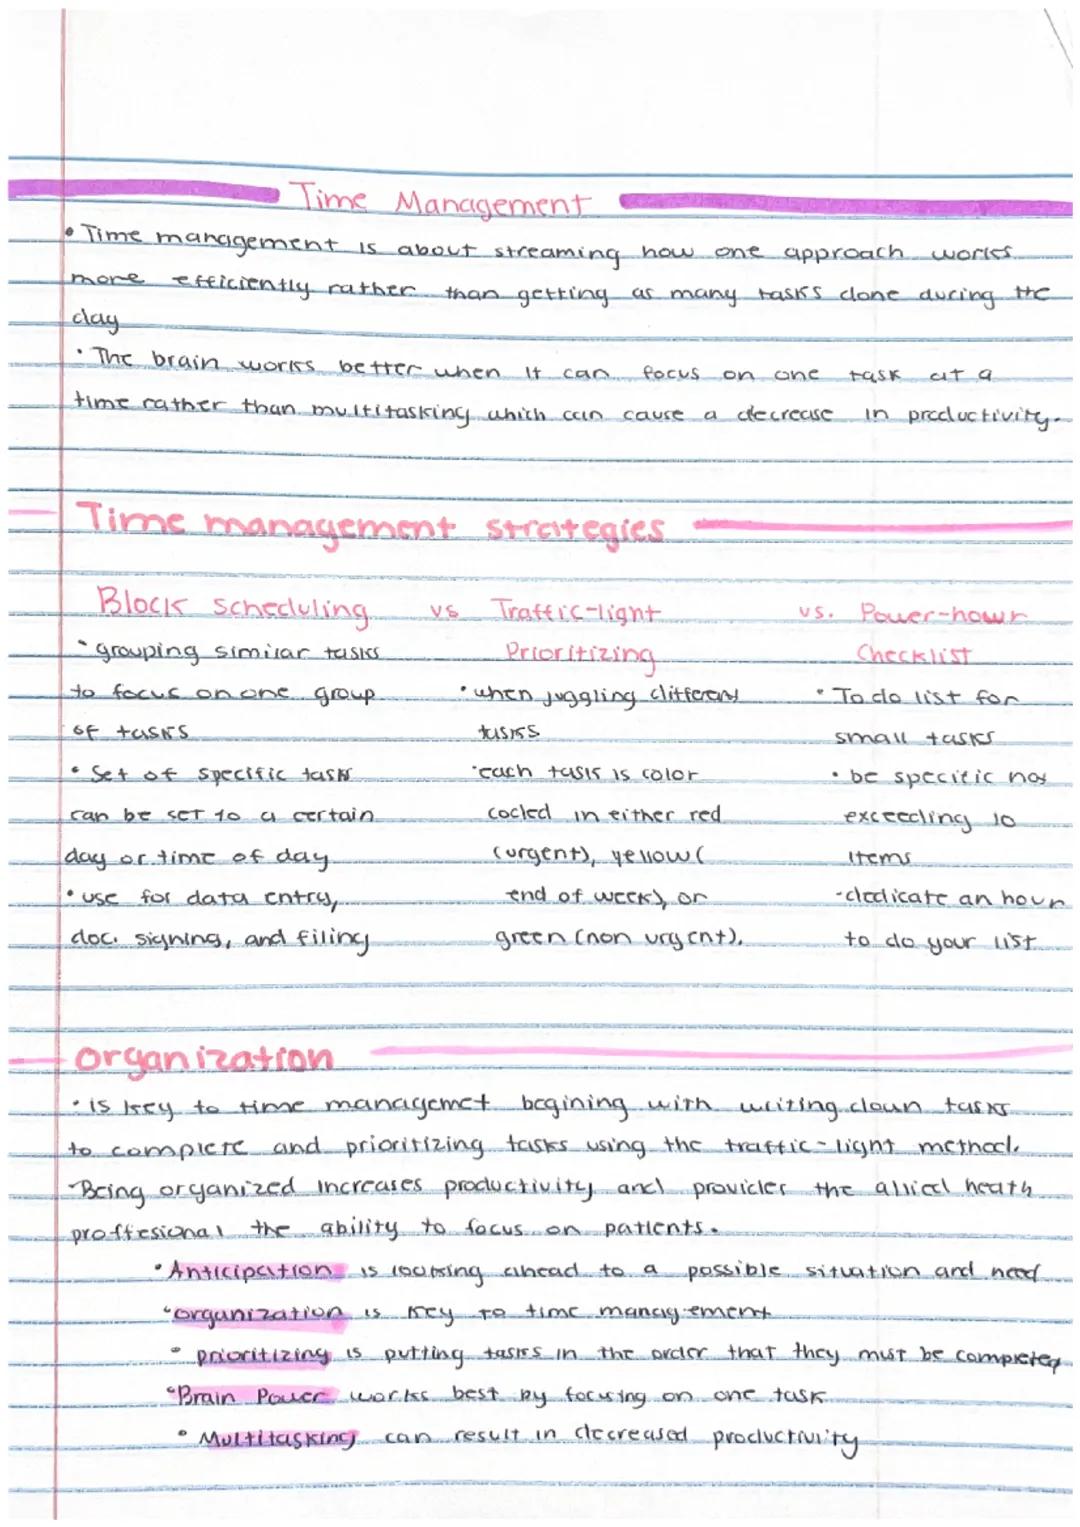 Time Management
• Time management is about streaming how one approach works
more efficiently rather than getting as many tasks done during the
day
• The brain works better when it can focus on one task at a
time rather than multitasking which can cause a decrease in productivity.
Time management strategies
Block scheduling vs Traffic-light vs. Power-hour
Prioritizing Checklist
• grouping similar tasks
to focus on one group
of tasks
• Set of specific tasks
can be set to a certain
day or time of day
• use for data entry,
doc. signing, and filing
• when juggling different
tasks
• each task is color
coded in either red
(urgent), yellow (
end of week), or
green (non urgent).
• To do list for
small tasks
• be specific not
exceeding 10
items
- dedicate an hour
to do your list
organization
• is key to time managemet begining with writing down tasks
to complete and prioritizing tasks using the traffic-light method.
- Being organized increases productivity and provides the allied heath
proffesional the ability to focus on patients.
• Anticipation is looking ahead to a possible situation and need
• organization is key to time management
• prioritizing is putting tasks in the order that they must be completed
• Brain Power works best by focusing on one task
• Multitasking can result in decreased productivity